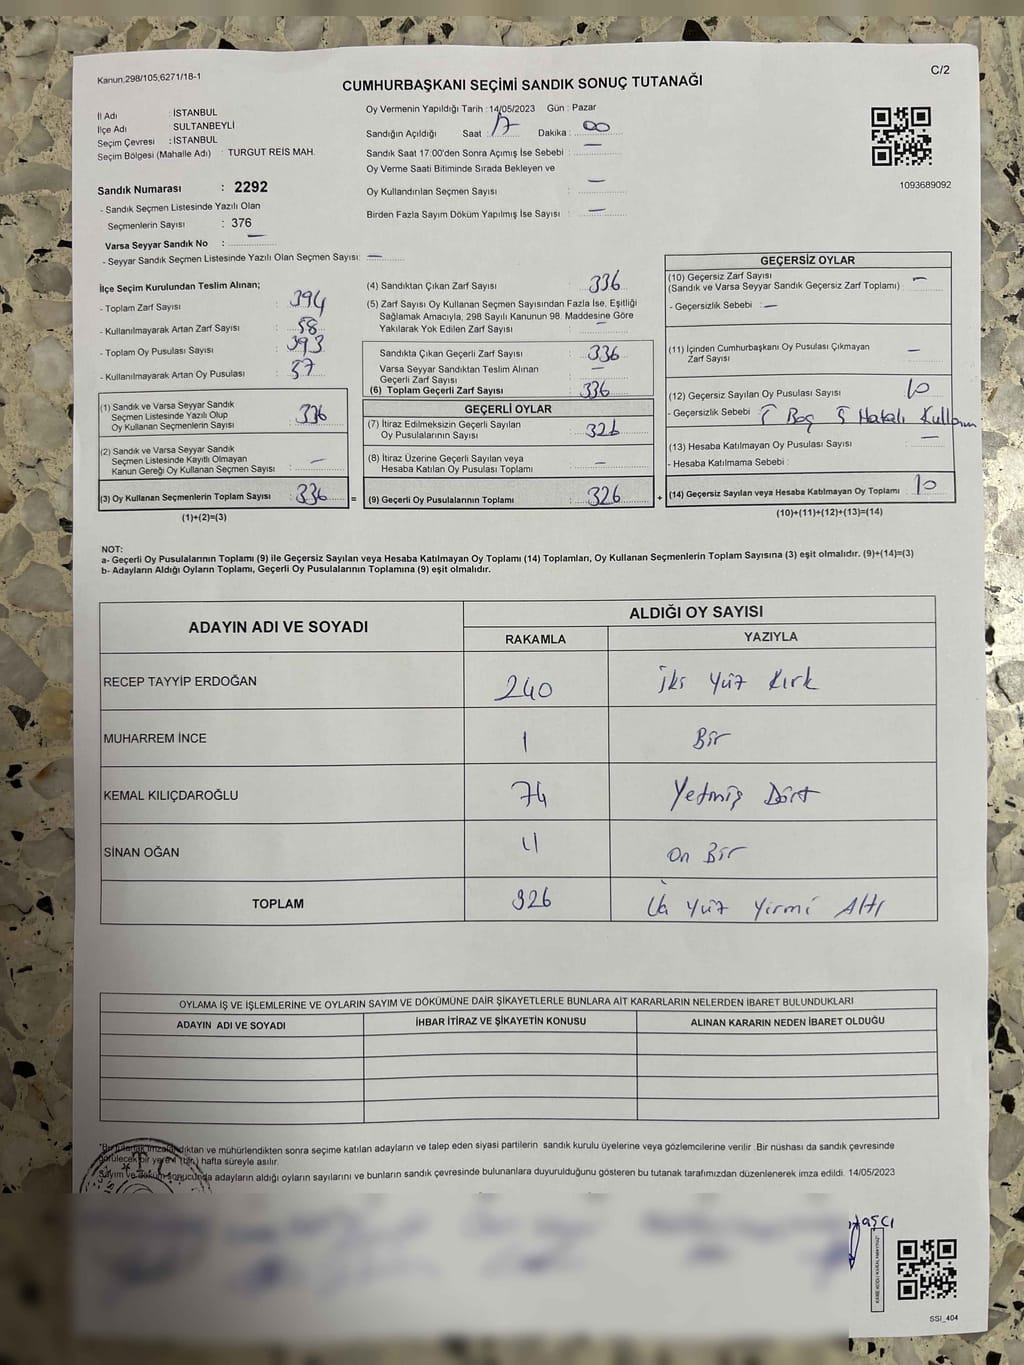 Kanun;298/105;6271/18-1
C/2
CUMHURBAŞKANI SEÇİMİ SANDIK SONUÇ TUTANAĞI
İl Adı : İSTANBUL
İlçe Adı SULTANBEYLİ
Seçim Çevresi : İSTANBUL
Seçim Bölgesi (Mahalle Adı) : TURGUT REİS MAH.
Sandık Numarası : 2292
- Sandık Seçmen Listesinde Yazılı Olan
Seçmenlerin Sayısı : 376
Varsa Seyyar Sandık No : —
- Seyyar Sandık Seçmen Listesinde Yazılı Olan Seçmen Sayısı: —
Oy Vermenin Yapıldığı Tarih : 14/05/2023 Gün : Pazar
Sandığın Açıldığı Saat : 17 Dakika : 00
Sandık Saat 17:00'den Sonra Açımış İse Sebebi : —
Oy Verme Saati Bitiminde Sırada Bekleyen ve
Oy Kullandırılan Seçmen Sayısı : —
Birden Fazla Sayım Döküm Yapılmış İse Sayısı : —
1093689092
İlçe Seçim Kurulundan Teslim Alınan;
- Toplam Zarf Sayısı : 394
- Kullanılmayarak Artan Zarf Sayısı : 58
- Toplam Oy Pusulası Sayısı : 393
- Kullanılmayarak Artan Oy Pusulası : 57
(1) Sandık ve Varsa Seyyar Sandık
Seçmen Listesinde Yazılı Olup
Oy Kullanan Seçmenlerin Sayısı : 336
(2) Sandık ve Varsa Seyyar Sandık
Seçmen Listesinde Kayıtlı Olmayan
Kanun Gereği Oy Kullanan Seçmen Sayısı : —
(3) Oy Kullanan Seçmenlerin Toplam Sayısı : 336 =
(1)+(2)=(3)
(4) Sandıktan Çıkan Zarf Sayısı : 336
(5) Zarf Sayısı Oy Kullanan Seçmen Sayısından Fazla İse, Eşitliği
Sağlamak Amacıyla, 298 Sayılı Kanunun 98. Maddesine Göre
Yakılarak Yok Edilen Zarf Sayısı : —
Sandıkta Çıkan Geçerli Zarf Sayısı : 336
Varsa Seyyar Sandıktan Teslim Alınan
Geçerli Zarf Sayısı : —
(6) Toplam Geçerli Zarf Sayısı : 336
GEÇERLİ OYLAR
(7) İtiraz Edilmeksizin Geçerli Sayılan
Oy Pusulalarının Sayısı : 326
(8) İtiraz Üzerine Geçerli Sayılan veya
Hesaba Katılan Oy Pusulası Toplamı : —
(9) Geçerli Oy Pusulalarının Toplamı : 326 +
GEÇERSİZ OYLAR
(10) Geçersiz Zarf Sayısı : —
(Sandık ve Varsa Seyyar Sandık Geçersiz Zarf Toplamı)
- Geçersizlik Sebebi : —
(11) İçinden Cumhurbaşkanı Oy Pusulası Çıkmayan
Zarf Sayısı : —
(12) Geçersiz Sayılan Oy Pusulası Sayısı : 10
- Geçersizlik Sebebi : 5 Boş 5 Hatalı Kullanım
(13) Hesaba Katılmayan Oy Pusulası Sayısı : —
- Hesaba Katılmama Sebebi :
(14) Geçersiz Sayılan veya Hesaba Katılmayan Oy Toplamı : 10
(10)+(11)+(12)+(13)=(14)
NOT:
a- Geçerli Oy Pusulalarının Toplamı (9) ile Geçersiz Sayılan veya Hesaba Katılmayan Oy Toplamı (14) Toplamları, Oy Kullanan Seçmenlerin Toplam Sayısına (3) eşit olmalıdır. (9)+(14)=(3)
b- Adayların Aldığı Oyların Toplamı, Geçerli Oy Pusulalarının Toplamına (9) eşit olmalıdır.
ADAYIN ADI VE SOYADI
ALDIĞI OY SAYISI
RAKAMLA YAZIYLA
RECEP TAYYİP ERDOĞAN 240 İki Yüz Kırk
MUHARREM İNCE 1 Bir
KEMAL KILIÇDAROĞLU 74 Yetmiş Dört
SİNAN OĞAN 11 On Bir
TOPLAM 326 Üç Yüz Yirmi Altı
OYLAMA İŞ VE İŞLEMLERİNE VE OYLARIN SAYIM VE DÖKÜMÜNE DAİR ŞİKAYETLERLE BUNLARA AİT KARARLARIN NELERDEN İBARET BULUNDUKLARI
ADAYIN ADI VE SOYADI İHBAR İTİRAZ VE ŞİKAYETİN KONUSU ALINAN KARARIN NEDEN İBARET OLDUĞU
"Bu tutanak imzalandıktan ve mühürlendikten sonra seçime katılan adayların ve talep eden siyasi partilerin sandık kurulu üyelerine veya gözlemcilerine verilir. Bir nüshası da sandık çevresinde
görülecek bir yere 1 (bir) hafta süreyle asılır.
Sayım ve döküm sonucunda adayların aldığı oyların sayılarını ve bunların sandık çevresinde bulunanlara duyurulduğunu gösteren bu tutanak tarafımızdan düzenlenerek imza edildi. 14/05/2023
T.C.
SSI_404